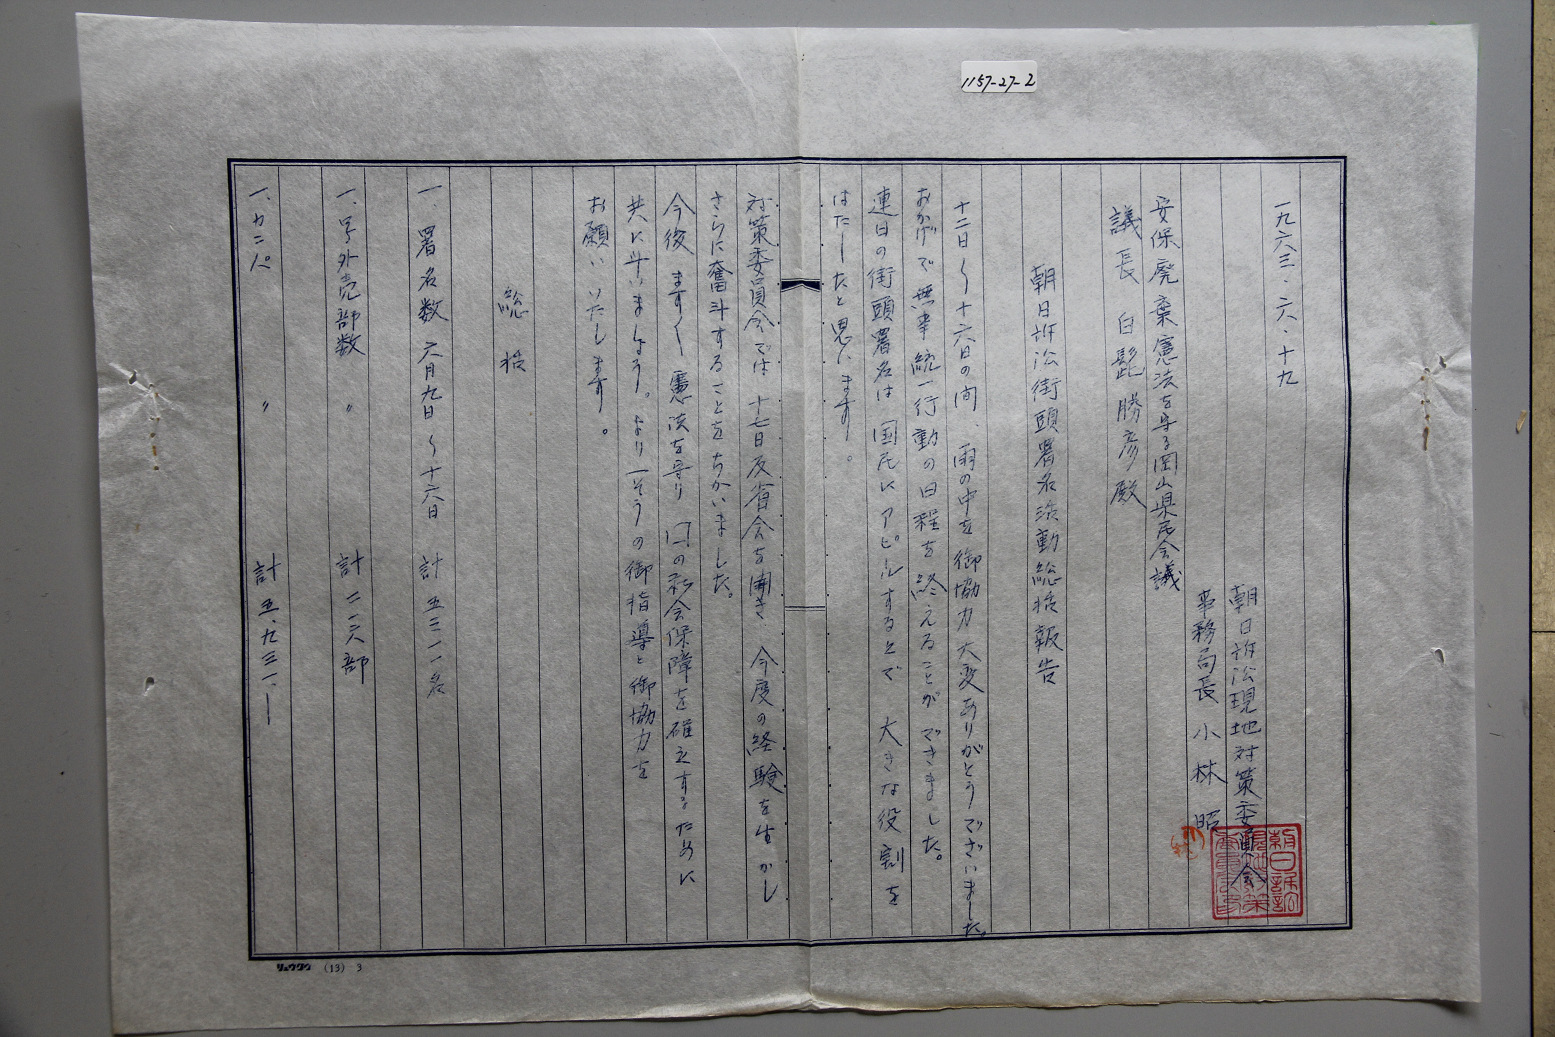 1157-27-2
一九六三・六・十九
朝日訴訟現地対策委員会
事務局長 小林昭
安保廃棄憲法を守る岡山県民会議
議長 白髭勝彦殿
朝日訴訟街頭署名活動総括報告
十二日〜十六日の間、雨の中を御協力大変ありがとうございました。
おかげで無事統一行動の日程を終えることができました。
連日の街頭署名は国民にアピールすると で 大きな役割を
はたしたと思います。
対策委員会では十七日反省会を開き、今度の経験を生かし
さらに奮斗することをちかいました。
今後ますます憲法を守り 口の社会保障を確立するために
共に斗いましょう。より一そうの御指導と御協力を
お願いいたします。
総括
一、署名数 六月九日〜十六日 計 五三一一名
一、号外売部数 〃 計 二一六部
一、カンパ 〃 計 五、九三一、―
リュウグウ (13) 3